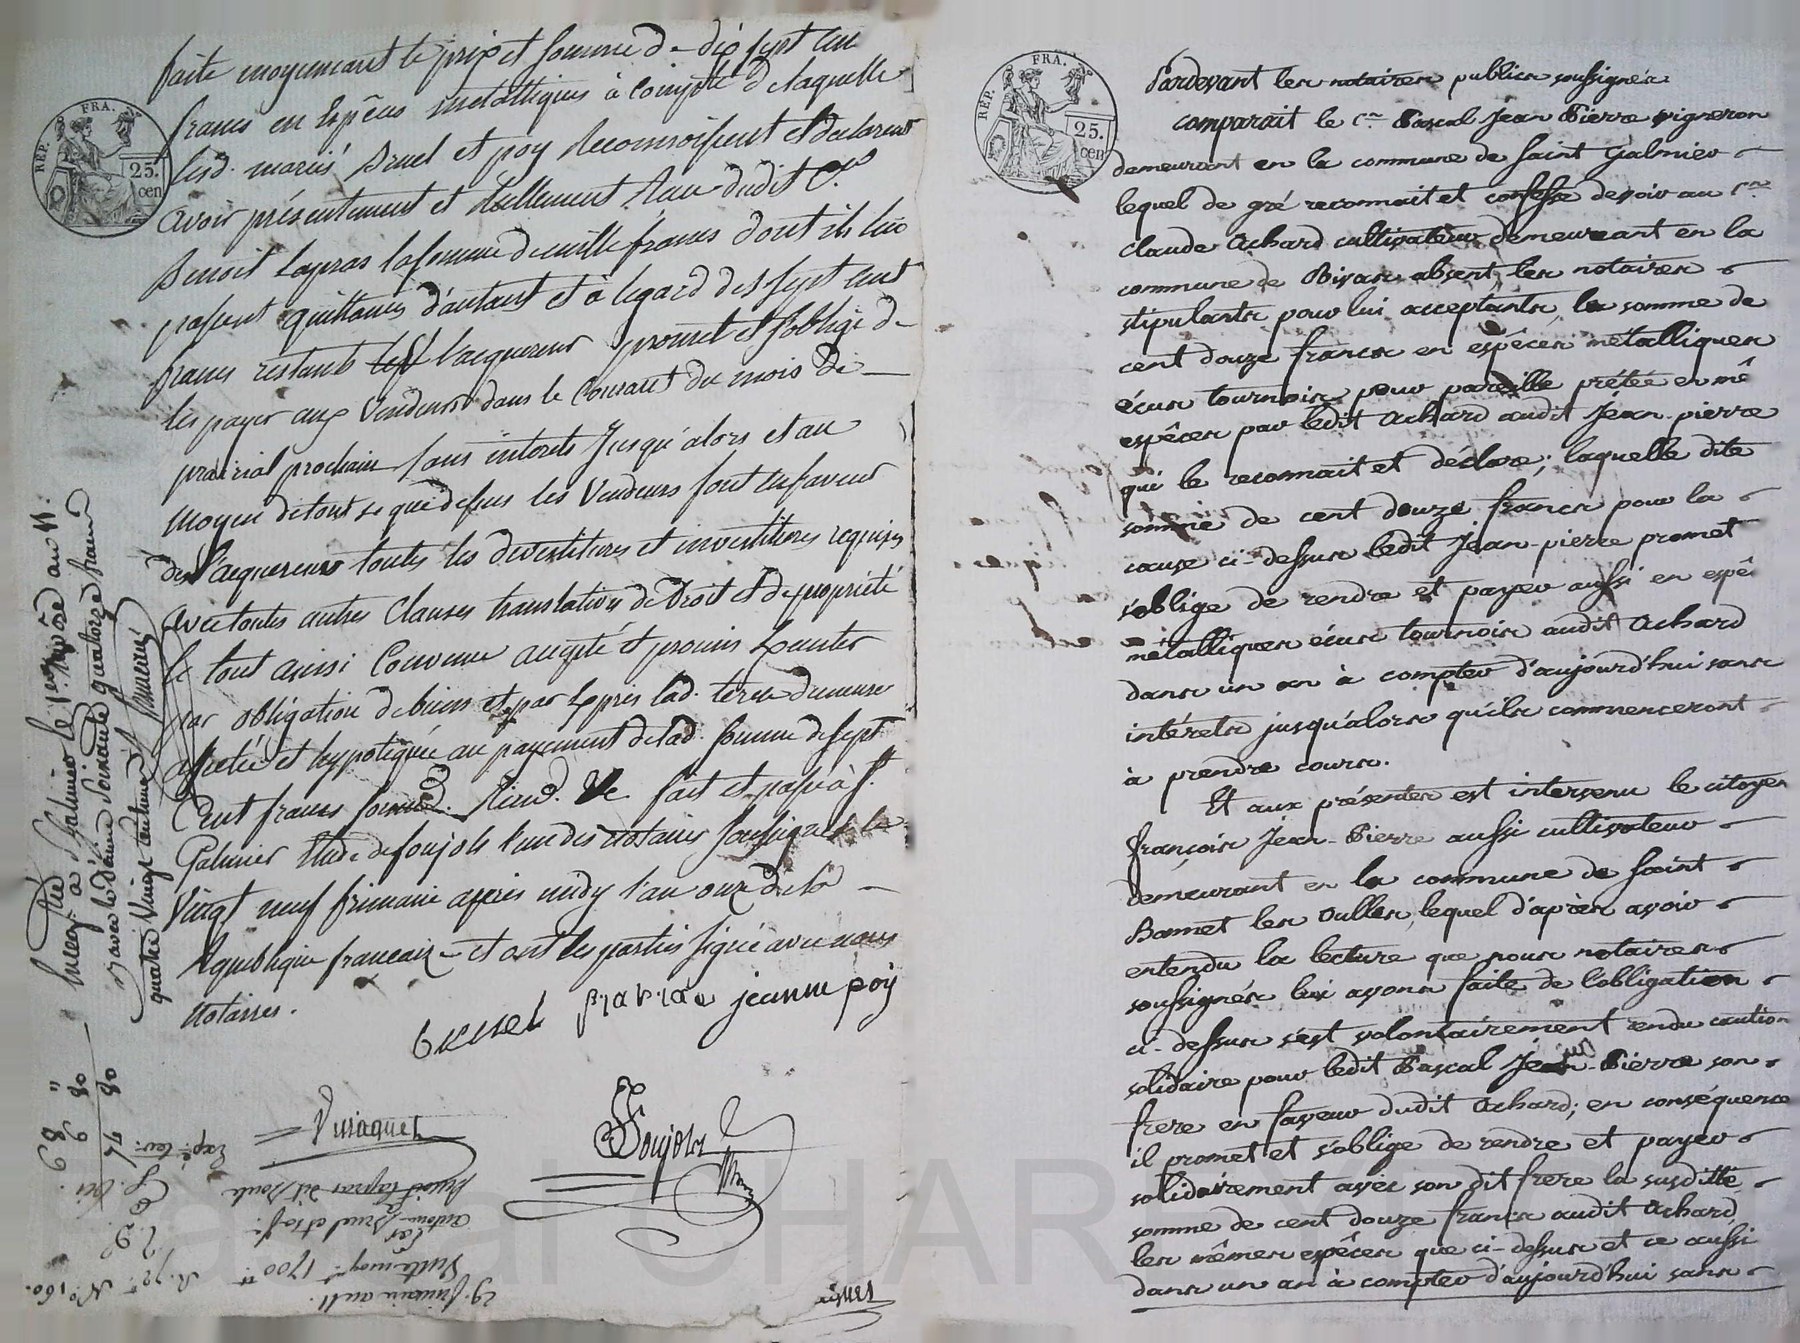 RÉP. FRA.
25.
cen
faite moyennant le prix et somme de dix sept cent
francs en espèces métalliques à compte de laquelle
lesd. mariés Bruel et poy reconnoissent et déclarent
avoir présentement et réellement reçu dudit Cen
Benoit Lapras la somme de mille francs dont ils lui
passent quittance d'autant et à legard des sept cent
francs restants l'acquereur promet et s'oblige de
les payer aux Vendeurs dans le Courant du mois de
prairial prochain sans intérêts Jusqu'alors et au
moyen de tout ce que dessus les Vendeurs font en faveur
de l'acquereur toutes les devestitures et investitures requises
avec toutes autres Clauses translatives de Droit et de propriété
le tout ainsi Convenu accepté et promis executer
par obligation de biens et par exprès lad. terre demeure
affectée et hypotequée au payement de lad. somme de sept
Cent francs fait et passé à St.
Galmier Etude de foujols l'un des notaires soussignés le
Vingt neuf frimaire après midy l'an onze de la
République francaise et ont les parties signé avec nous
Notaires.
bruel jeanne poy
Viriaquet Foujols
Enreg. à St. Galmier le 1er. nivôse an 11.
quatre Vingt centimes
29. frimaire an 11.
Vente moyt. 1700 ff
Antoine Bruel et sa fe.
à
Benoit Lapras dit
No. 160.
RÉP. FRA.
25.
cen
Pardevant les notaires publics soussignés
comparait le cen Pascal Jean Pierre vigneron
demeurant en la commune de Saint Galmier
lequel de gré reconnait et confesse devoir au cen
Claude Achard cultivateur demeurant en la
commune de Rivas absent, les notaires
stipulants pour lui acceptants, la somme de
cent douze francs en espèces métalliques
écus tournois pour pareille prétée en mê
espêces par ledit Achard audit Jean-pierre
qui le reconnait et déclare; laquelle dite
somme de cent douze francs pour la
cause ci-dessus ledit Jean-pierre promet
s'oblige de rendre et payer aussi en espê
métalliques écus tournois audit Achard
dans un an à compter d'aujourd'hui sans
intérets jusqu'alors qu'ils commenceront
à prendre cours.
Et aux présentes est intervenu le citoyen
François Jean-Pierre aussi cultivateur
demeurant en la commune de Saint
Bonnet les oulles, lequel d'après avoir
entendu la lecture que nous notaires
soussignés lui avons faite de l'obligation
ci-dessus s'est volontairement rendu caution
solidaire pour ledit Pascal Jean-Pierre son
frere en faveur dudit Achard; en conséquence
il promet et s'oblige de rendre et payer
solidairement avec son dit frere la susditte
somme de cent douze francs audit Achard
les mêmes espêces que ci-dessus et ce aussi
dans un an à compter d'aujourd'hui sans